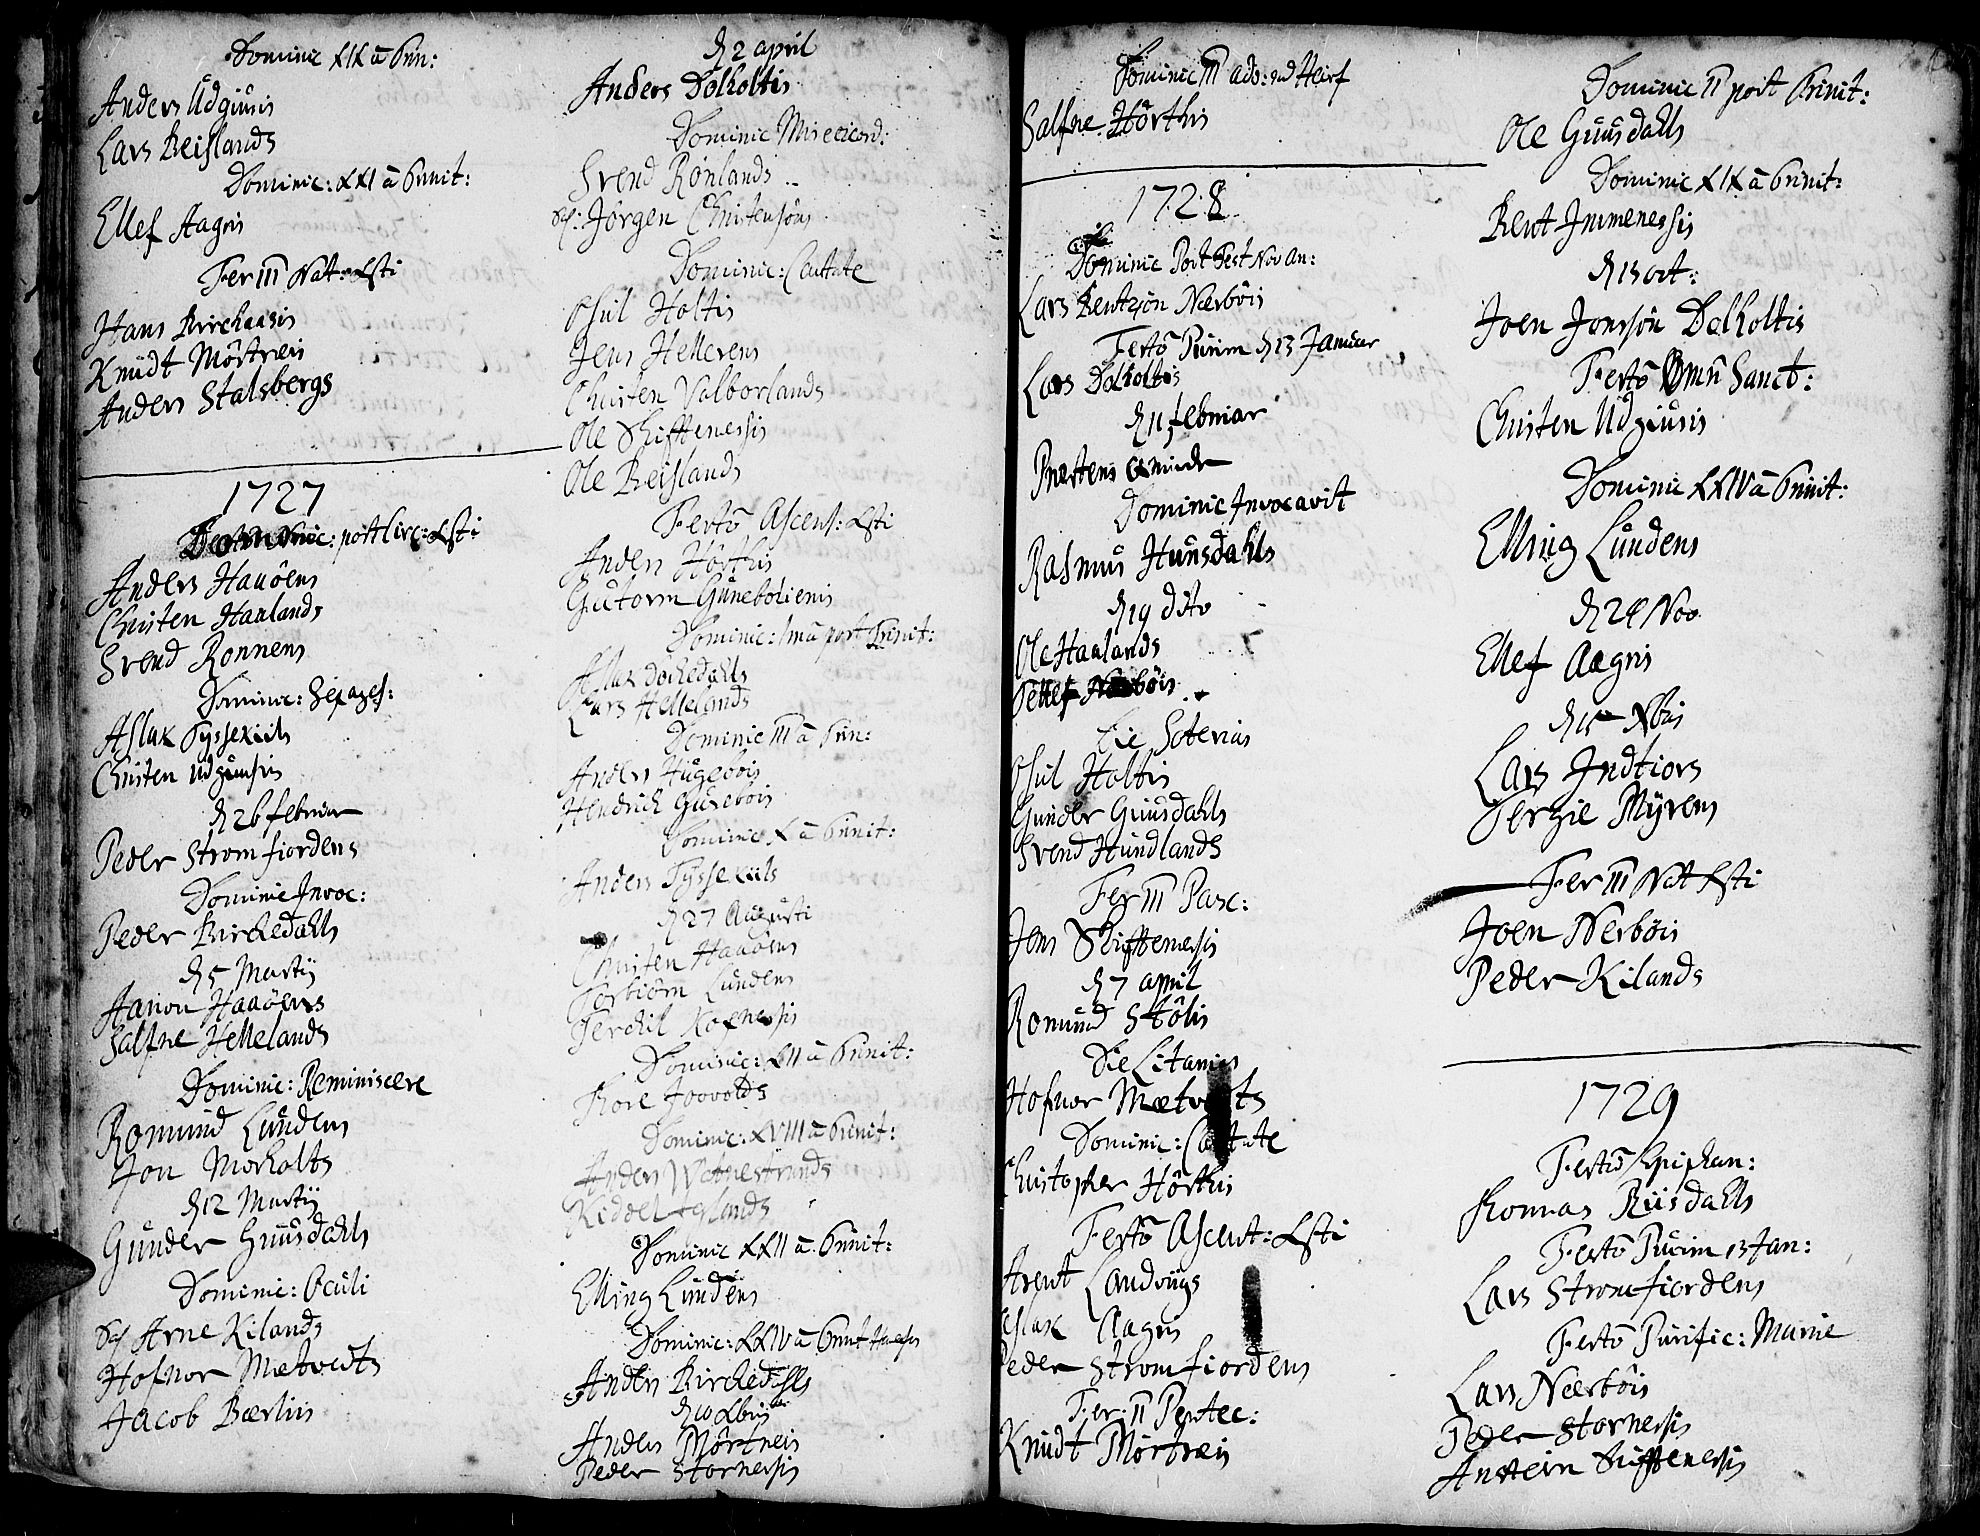 Dominic XIX a Trin:
Anders Udgiusis
Lars Reislands
Dominic: XXI a Trinit:
Ellef Aagris
Fer III Nat: Xsti
Hans Birchaasis
Knudt Mørtreis
Anders Stalsbergs
1727
Dominic: post Circ: Xsti
Anders Haaøens
Christen Haalands
Svend Rønnens
Dominic: Sexages:
Aslak Tyssekiils
Christen Udgiusis
d 26 februar
Peder Strømfiordens
Dominic Invoc:
Peder Birchedahls
d 5 Martij
Aanon Haaøens
Salfne Hellelands
Dominic: Reminiscere
Romund Lundens
Jon Morholts
d 12 Martij
Gunder Guusdahls
Dominic: Oculi
Arne Kilands
Hofnor Mætvedts
Jacob Bærliis
d 2 april
Anders Dolholtis
Dominic Misericord:
Svend Rønlands
Jørgen Christensøns
Dominic: Cantate
Osul Holtis
Jens Hellerens
Christen Valborlands
Ole Skifftenessis
Ole Reislands
Festo Ascens: Xsti
Anders Hørthis
Gutorm Guneboliens
Dominic: Ima post Trinit:
Aslak Dochedahls
Lars Hellelands
Dominic III a Trin:
Anders Hugebois
Hendrich Gusebois
Dominic X a Trinit:
Anders Tyssekiils
d 27 Augusti
Christen Haaøens
Torbiørn Lundens
Terchil Kofnessis
Dominic: XII a Trinit:
Thore Joovolds
Dominic: XVIII a Trinit:
Anders Watnestrands
Kiddel
Dominic XXII a Trinit:
Elling Lundens
Dominic: XXIV a Trinit
Anders Birchedahls
d 10 Xbris
Anders Mørtreis
Peder Stornessis
Dominic III adv:
Salfne Hørthis
1728
Dominic Post Fest Nov An:
Lars Bentzøn Nærbøis
Festo Purim d 13 Januar
Lars Dolholtis
d 11 februar
Dominic Invocavit
Rasmus Hunsdahls
d 19 dito
Ole Haalands
Tellef Nærbøis
Die Soterias
Osul Holtis
Gunder Guusdahls
Svend Hundlands
Fer III Pasc:
Jens Skifftenessis
d 7 april
Romund Støliis
Die Litanias
Hofnor Mætvedts
Dominic: Cantate
Christopher Hørthis
Festo Ascent: Xsti
Arent Landviigs
Aslak Aagris
Peder Strømfiordens
Fer: II Pentec:
Knudt Mørtreis
Dominic II post Trinit:
Ole Guusdahls
Dominic XIX a Trinit:
Bent Immenessis
d 13 oct:
Joen Jonsøn Dolholtis
Festo Omn Sanct:
Christen Udgiusis
Dominic XXIV a Trinit:
Elling Lundens
d 24 Nov
Ellef Aagris
d 15 Xbris
Lars Indtiørs
Terzie Myrens
Fer III Nat Xsti
Joen Nerbøis
Peder Kilands
1729
Festo Epiphan:
Thomas Riisdahls
Festo Purim 13 Jan:
Lars Strømfiordens
Festo Purific: Mariæ
Lars Nærbøis
Peder Stornessis
Anstein Skifftenessis